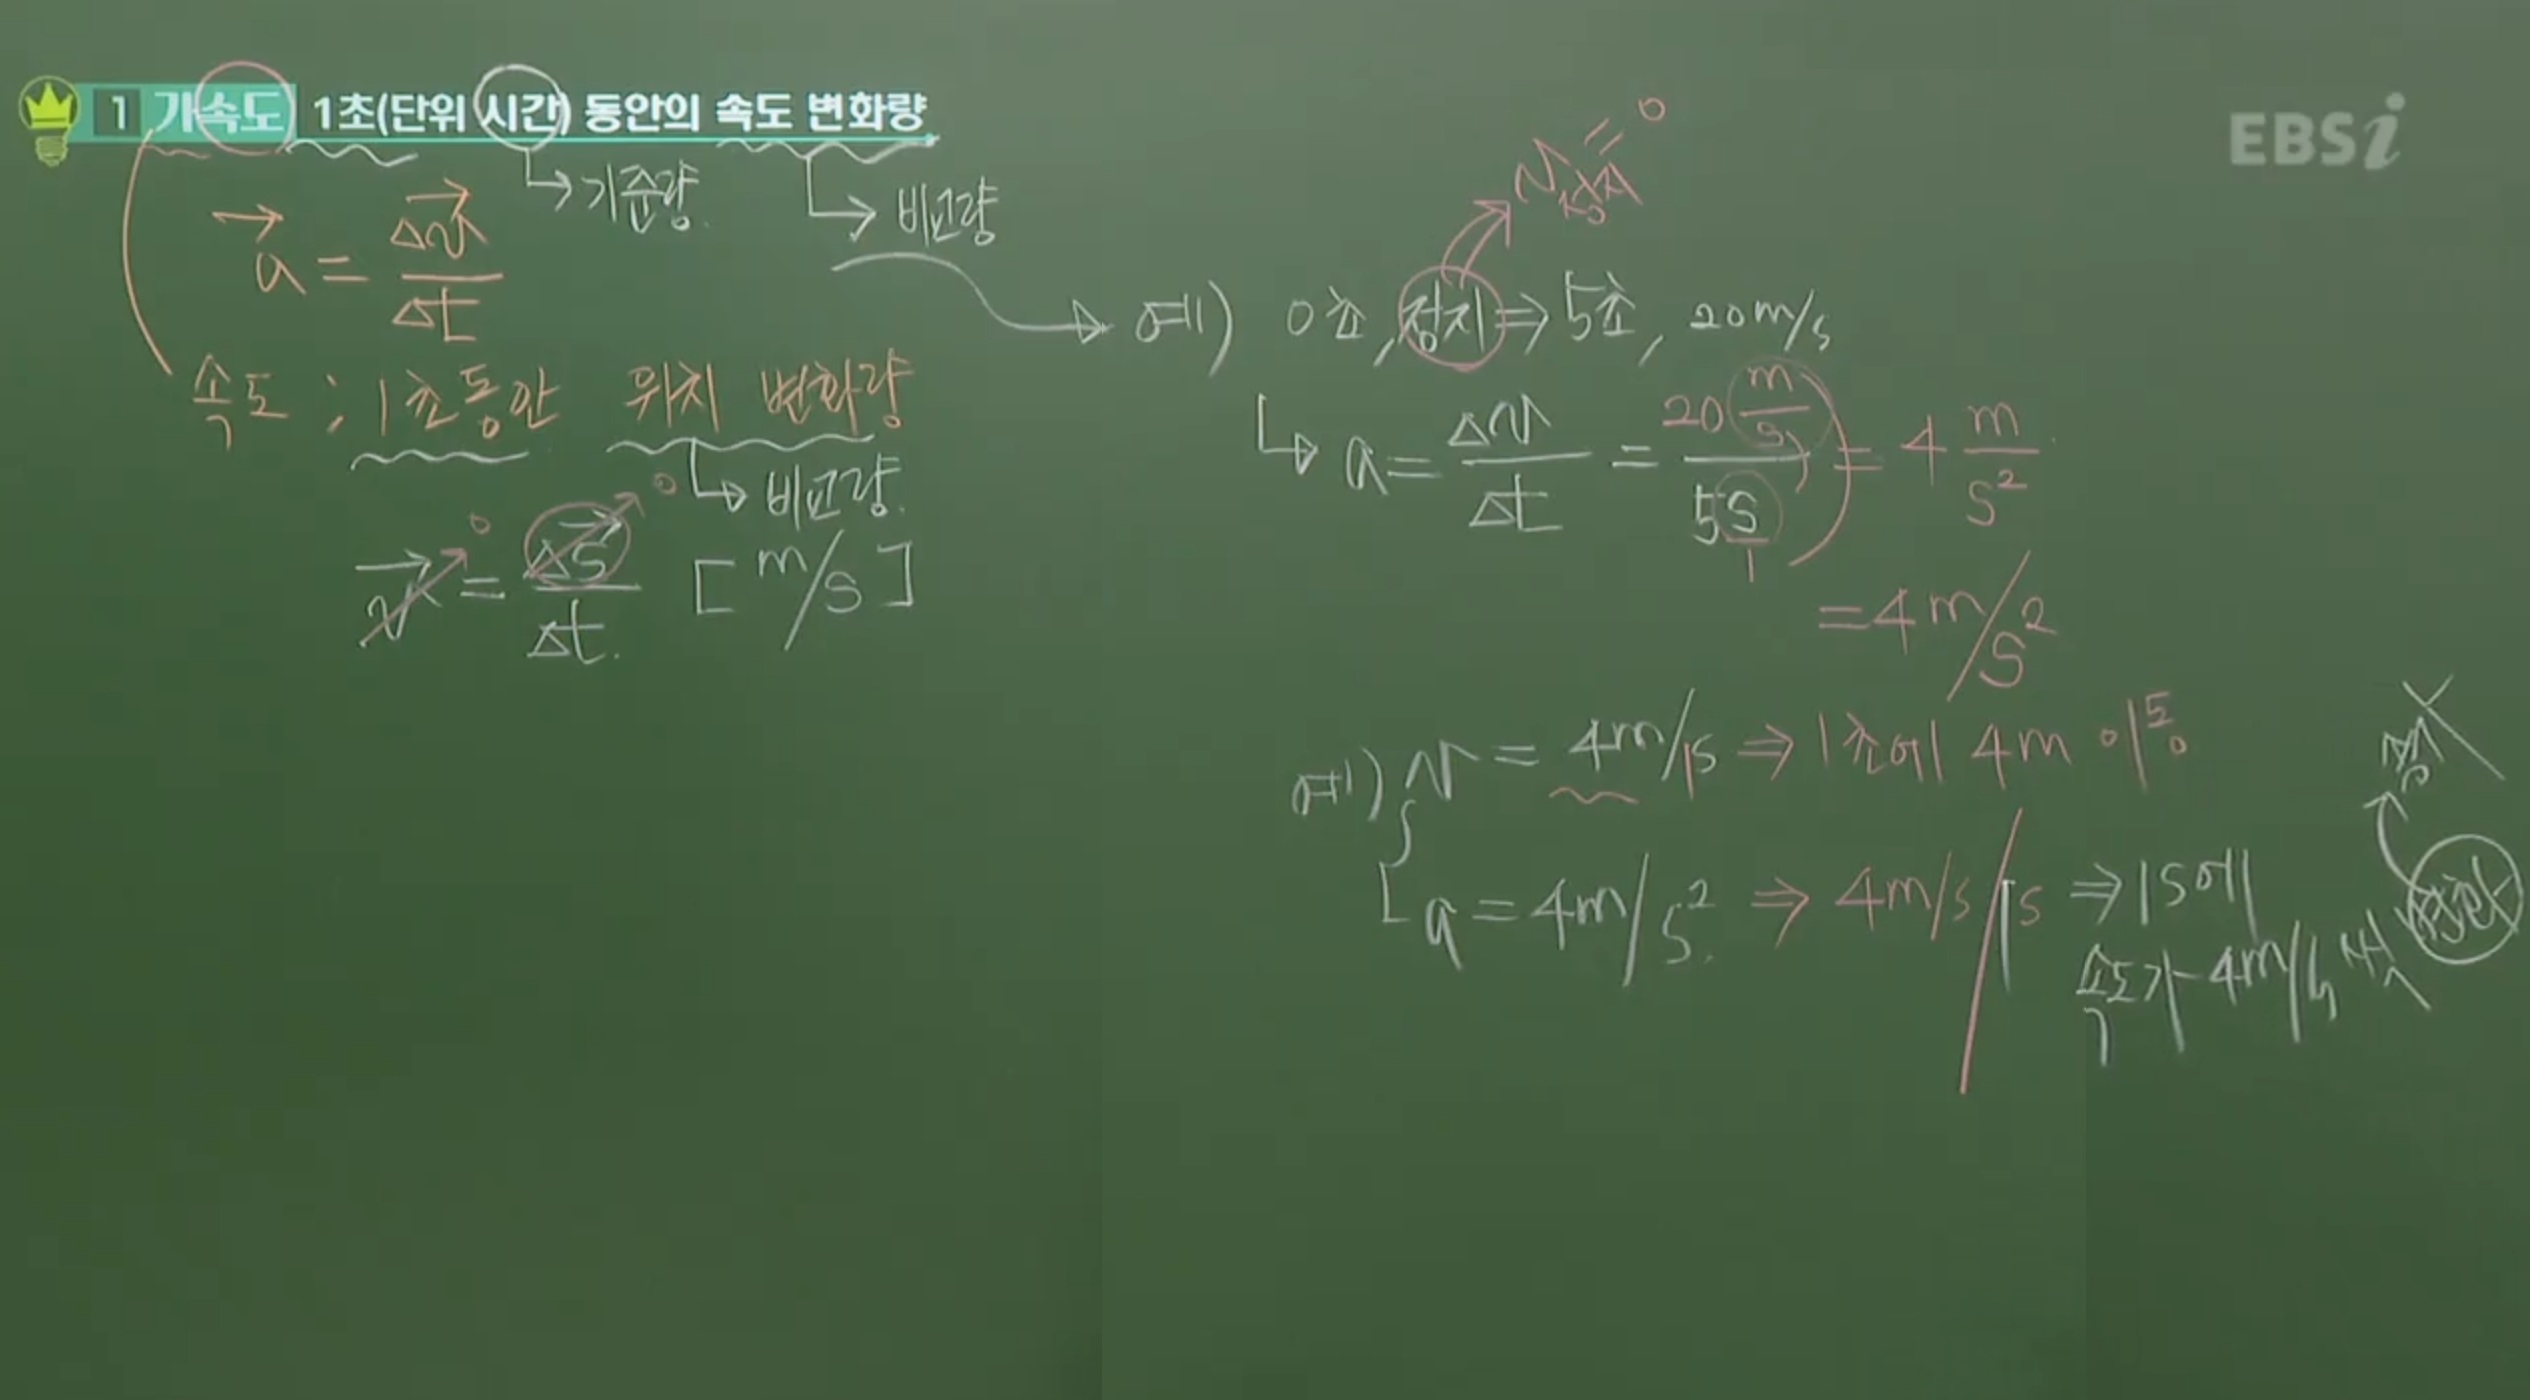 1 가속도 1초(단위 시간) 동안의 속도 변화량
EBSi
→기준량.
→비교량
a = Δv/Δt
속도 ; 1초동안 위치 변화량
→비교량.
v = Δs/Δt. [m/s]
0
0
v정지 = 0
예) 0초, 정지 ⇒ 5초, 20m/s
a = Δv/Δt = 20 m/s / 5s/1 = 4 m/s²
= 4m/s²
예) v = 4m/1s ⇒ 1초에 4m 이동
a = 4m/s². ⇒ 4m/s/1s ⇒ 1s에
속도가 4m/s씩